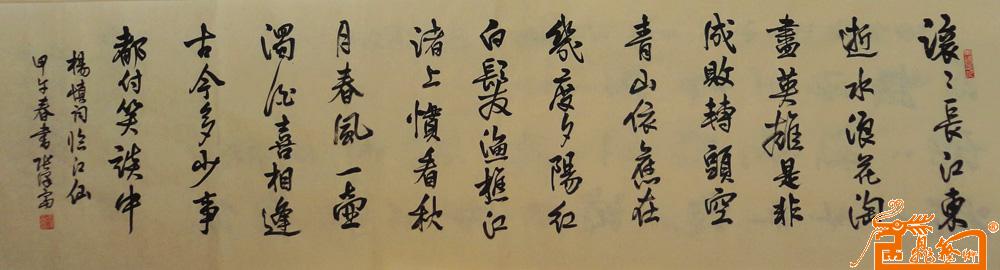 滾〻長江東
逝水浪花淘
盡英雄是非
成敗轉頭空
青山依舊在
幾度夕陽紅
白髮漁樵江
渚上慣看秋
月春風一壺
濁酒喜相逢
古今多少事
都付笑談中
楊慎詞臨江仙
甲午春書